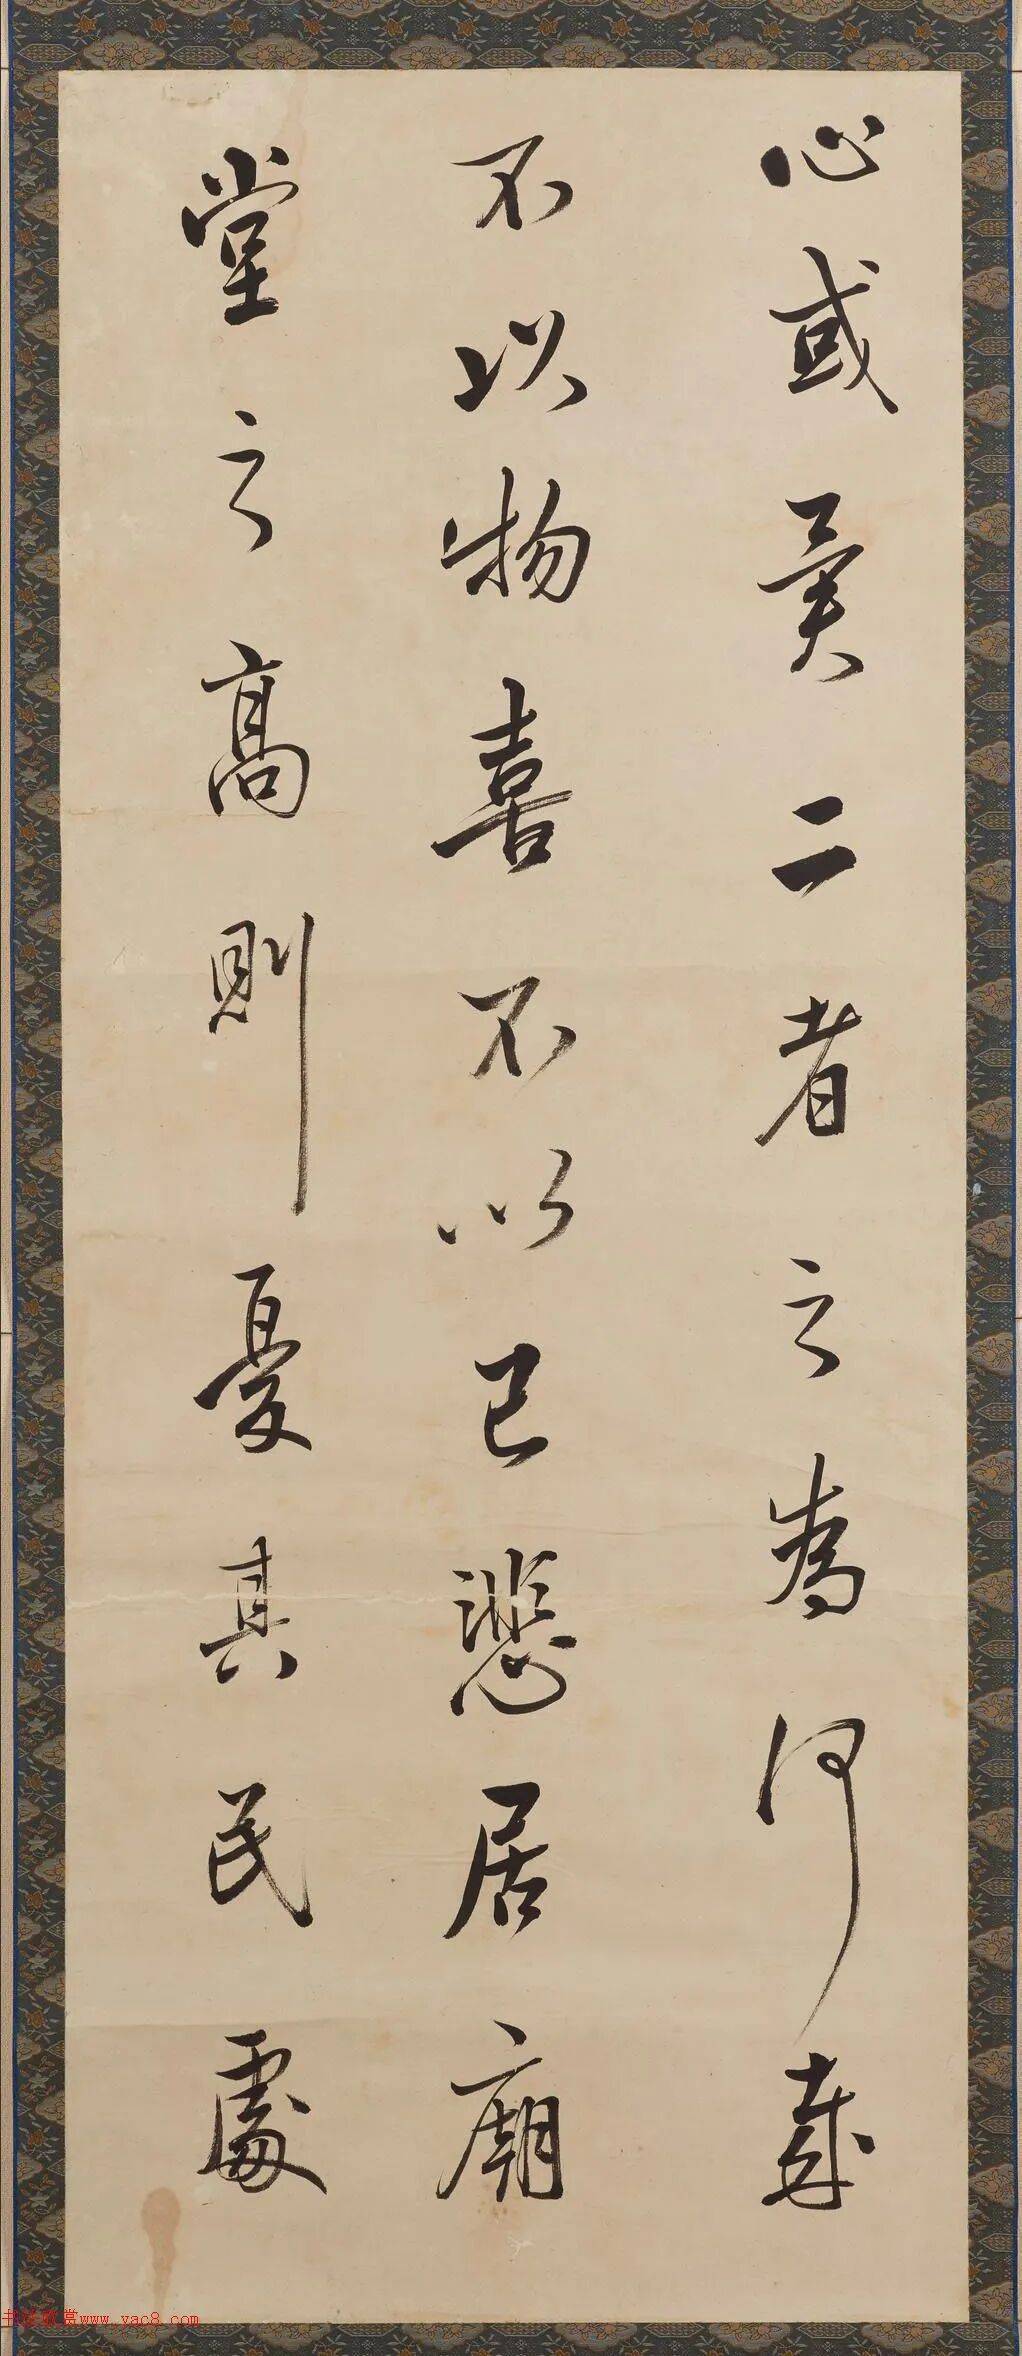 心或異二者之為何哉
不以物喜不以己悲居廟
堂之高則憂其民處
书法欣赏www.yac8.com